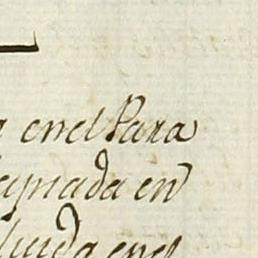 enel Para
apiada en
luida enel